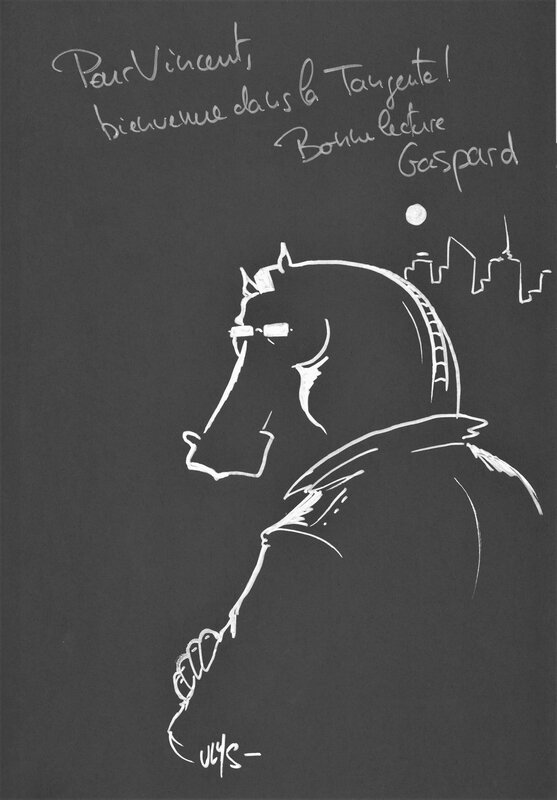 Pour Vincent,
bienvenue dans la Tangente!
Bonne lecture
Gaspard
ULYS-